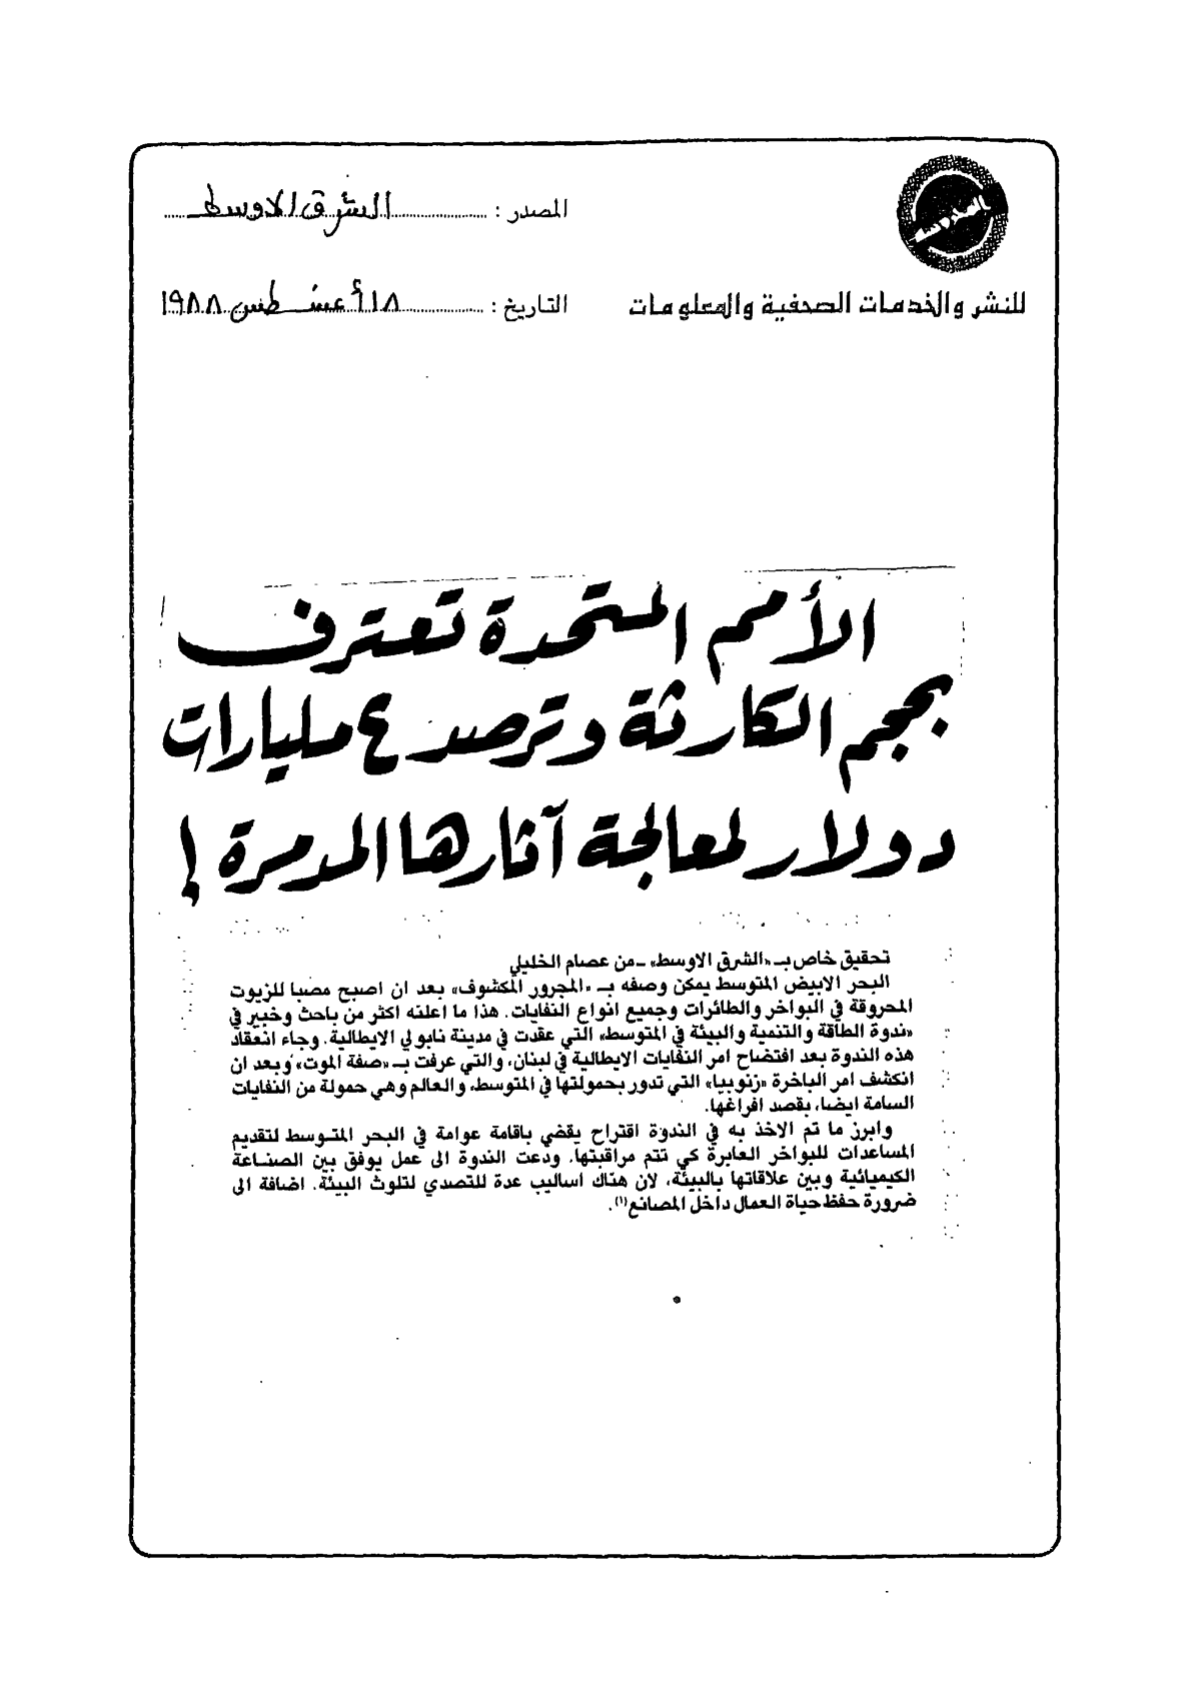 المصدر : الشرق الاوسط
للنشر والخدمات الصحفية والمعلومات
التاريخ : ١٨ أغسطس ١٩٨٨
الأمم المتحدة تعترف
بحجم الكارثة وترصد ٤ مليارات
دولار لمعالجة آثارها المدمرة !
تحقيق خاص بـ «الشرق الاوسط» ـ من عصام الخليلي
البحر الابيض المتوسط يمكن وصفه بـ «المجرور المكشوف» بعد ان اصبح مصبا للزيوت
المحروقة في البواخر والطائرات وجميع انواع النفايات. هذا ما اعلنه اكثر من باحث وخبير في
«ندوة الطاقة والتنمية والبيئة في المتوسط» التي عقدت في مدينة نابولي الايطالية. وجاء انعقاد
هذه الندوة بعد افتضاح امر النفايات الايطالية في لبنان، والتي عرفت بـ «صفة الموت» وبعد ان
انكشف امر الباخرة «زنوبيا» التي تدور بحمولتها في المتوسط، والعالم وهي حمولة من النفايات
السامة ايضا، بقصد افراغها.
وابرز ما تم الاخذ به في الندوة اقتراح يقضي باقامة عوامة في البحر المتوسط لتقديم
المساعدات للبواخر العابرة كي تتم مراقبتها. ودعت الندوة الى عمل يوفق بين الصناعة
الكيميائية وبين علاقاتها بالبيئة، لان هناك اساليب عدة للتصدي لتلوث البيئة. اضافة الى
ضرورة حفظ حياة العمال داخل المصانع(١).